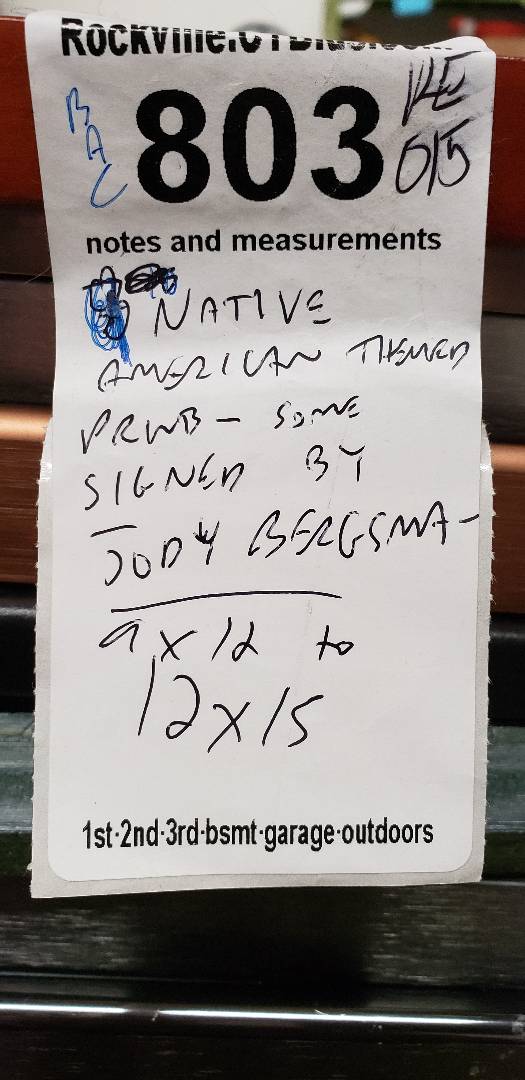 BAC
803
015
notes and measurements
NATIVE
AMERICAN THEMED
SOME
SIGNED BY
JODY BERGSMA-
9 x 12 to
12 x 15
1st·2nd·3rd·bsmt·garage·outdoors